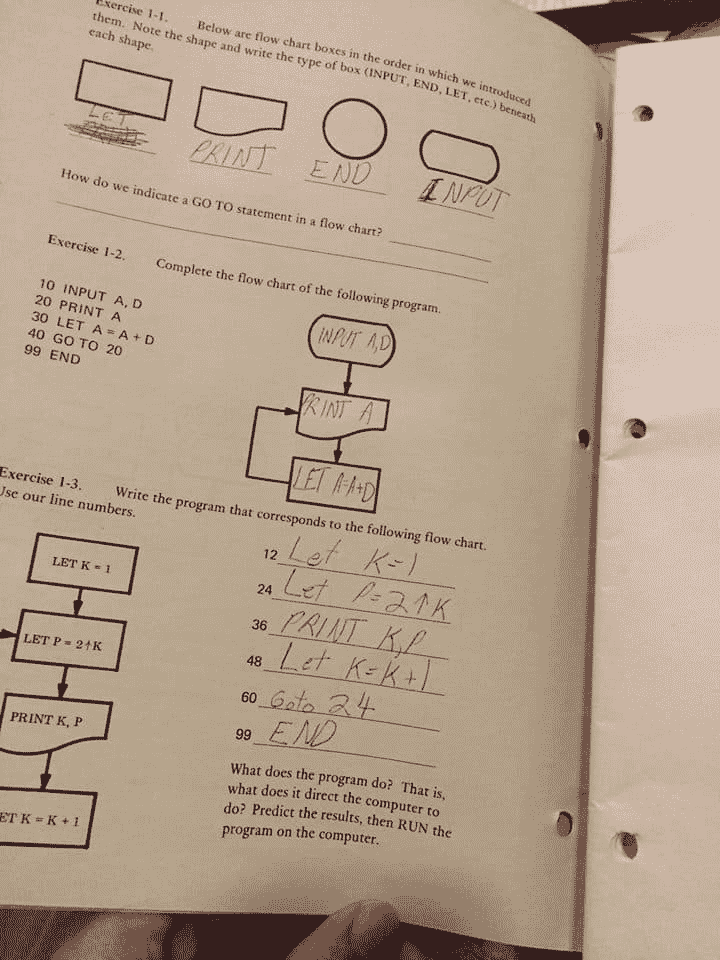 Exercise 1-1. Below are flow chart boxes in the order in which we introduced
them. Note the shape and write the type of box (INPUT, END, LET, etc.) beneath
each shape.
LET
PRINT
END
INPUT
How do we indicate a GO TO statement in a flow chart?
Exercise 1-2. Complete the flow chart of the following program.
10 INPUT A, D
20 PRINT A
30 LET A = A + D
40 GO TO 20
99 END
INPUT A,D
PRINT A
LET A=A+D
Exercise 1-3. Write the program that corresponds to the following flow chart.
Use our line numbers.
LET K = 1
LET P = 2↑K
PRINT K, P
LET K = K + 1
12 Let K=1
24 Let P=2↑K
36 PRINT K,P
48 Let K=K+1
60 Goto 24
99 END
What does the program do? That is,
what does it direct the computer to
do? Predict the results, then RUN the
program on the computer.